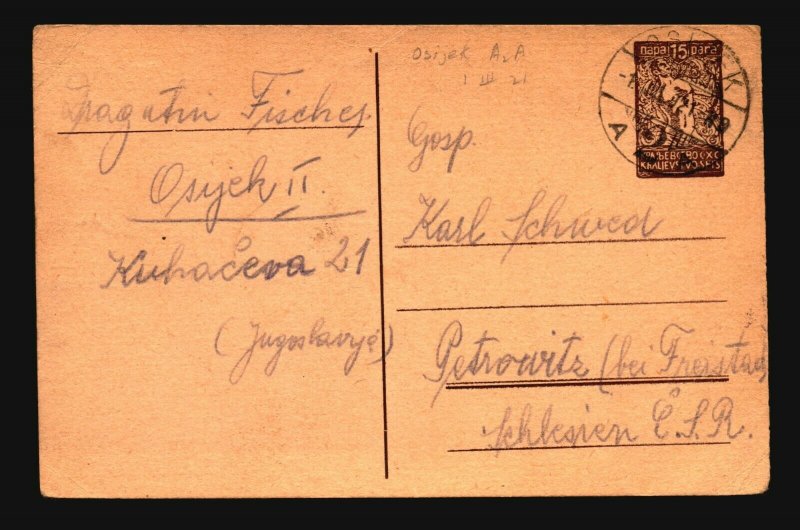 Osijek A, A
1 III 21
Dragutin Fischer
Osijek II.
Kuhačeva 21
(Jugoslavija)
папа 15 para
КРАЉЕВСТВО СХС
KRALJEVSTVO SHS
A
Gosp.
Karl Schwed
Petrowitz (bei Freistad
Schlesien Č.S.R.